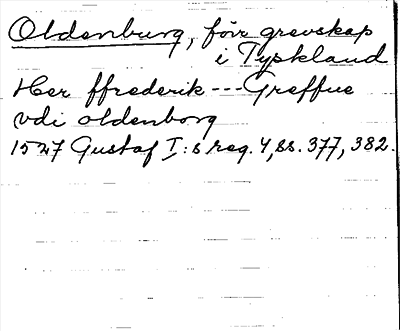 Oldenburg, förr grevskap
i Tyskland
Her ffrederik --- Greffue
vdi oldenborg
1527 Gustaf I:s reg. 4, ss. 377, 382.